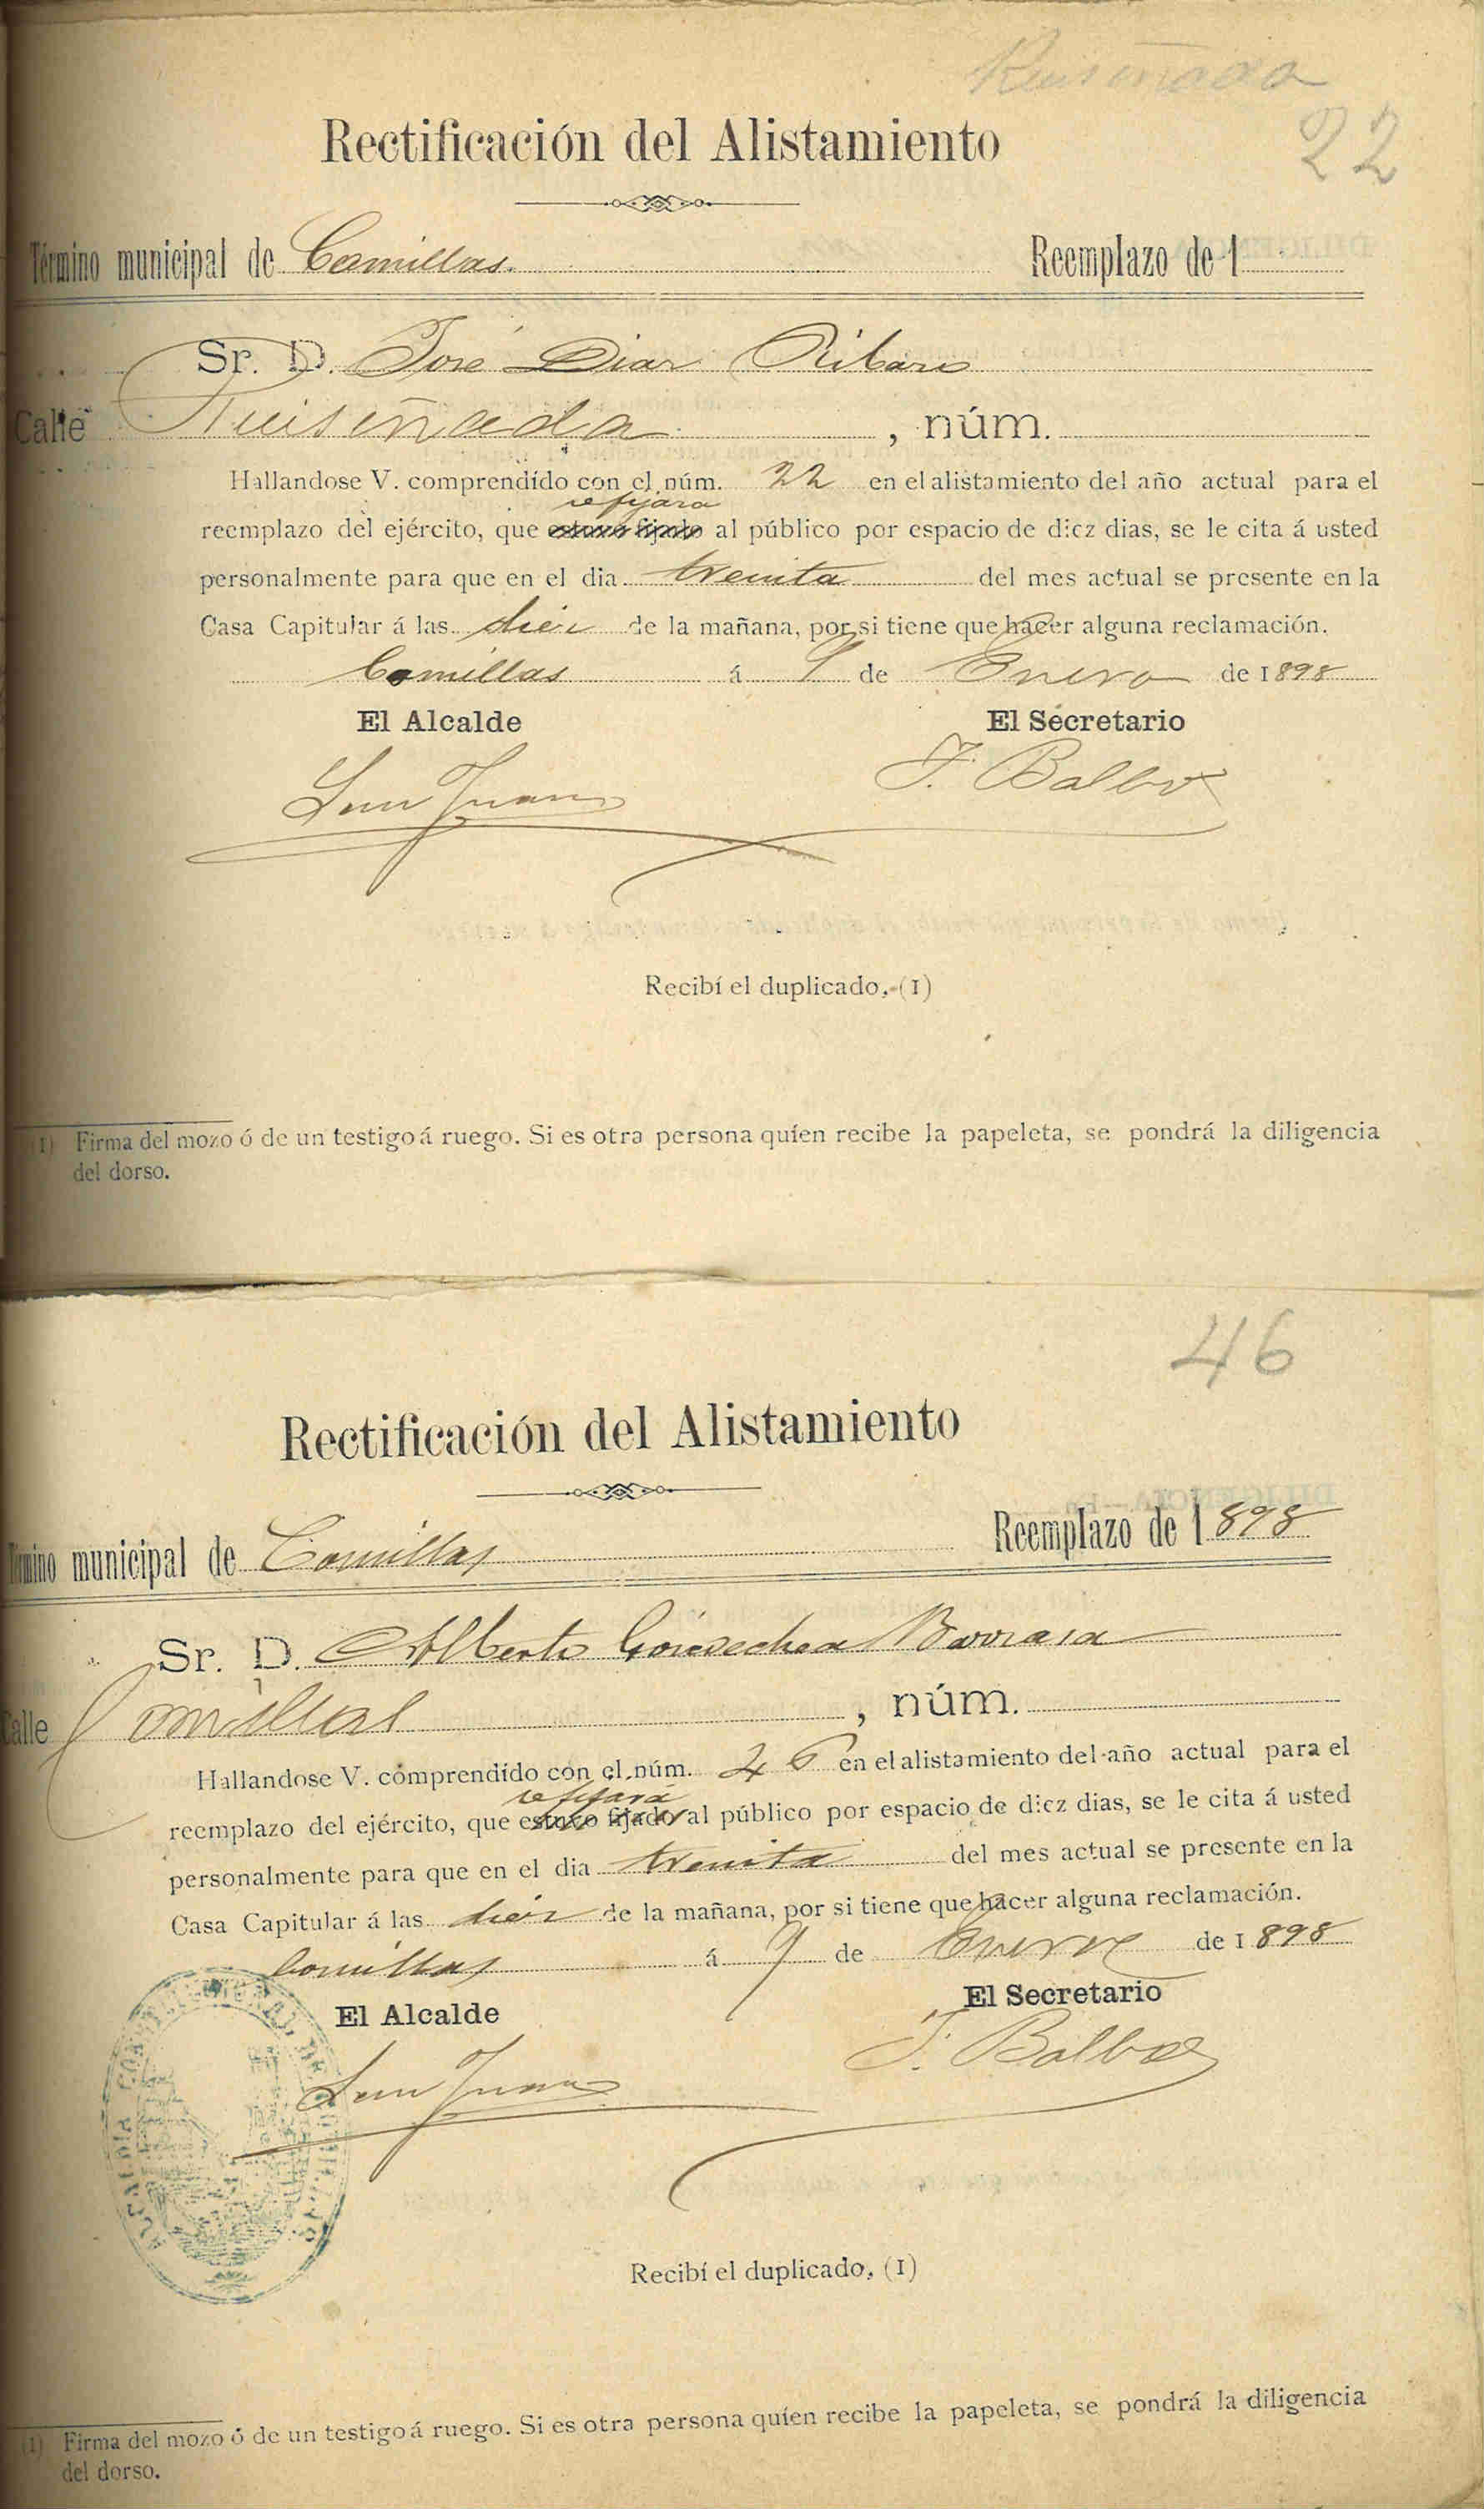 Ruiseñada
22
Rectificación del Alistamiento
Término municipal de Comillas. Reemplazo de 1
Sr. D. José Diaz
Calle Ruiseñada, núm.
Hallandose V. comprendido con el núm. 22 en el alistamiento del año actual para el
se fijara
reemplazo del ejército, que estuvo fijado al público por espacio de diez dias, se le cita á usted
personalmente para que en el dia treinta del mes actual se presente en la
Casa Capitular á las diez de la mañana, por si tiene que hacer alguna reclamación.
Comillas á 9 de Enero de 1898
El Alcalde El Secretario
Juan F. Balboa
Recibí el duplicado, (1)
(1) Firma del mozo ó de un testigo á ruego. Si es otra persona quíen recibe la papeleta, se pondrá la diligencia
del dorso.
46
Rectificación del Alistamiento
Término municipal de Comillas Reemplazo de 1898
Sr. D. Alberto Goicoechea
Calle Comillas, núm.
Hallandose V. comprendido con el núm. 46 en el alistamiento del año actual para el
se fijará
reemplazo del ejército, que estuvo fijado al público por espacio de diez dias, se le cita á usted
personalmente para que en el dia treinta del mes actual se presente en la
Casa Capitular á las diez de la mañana, por si tiene que hacer alguna reclamación.
Comillas á 9 de Enero de 1898
El Alcalde El Secretario
Juan F. Balboa
Recibí el duplicado, (1)
(1) Firma del mozo ó de un testigo á ruego. Si es otra persona quíen recibe la papeleta, se pondrá la diligencia
del dorso.